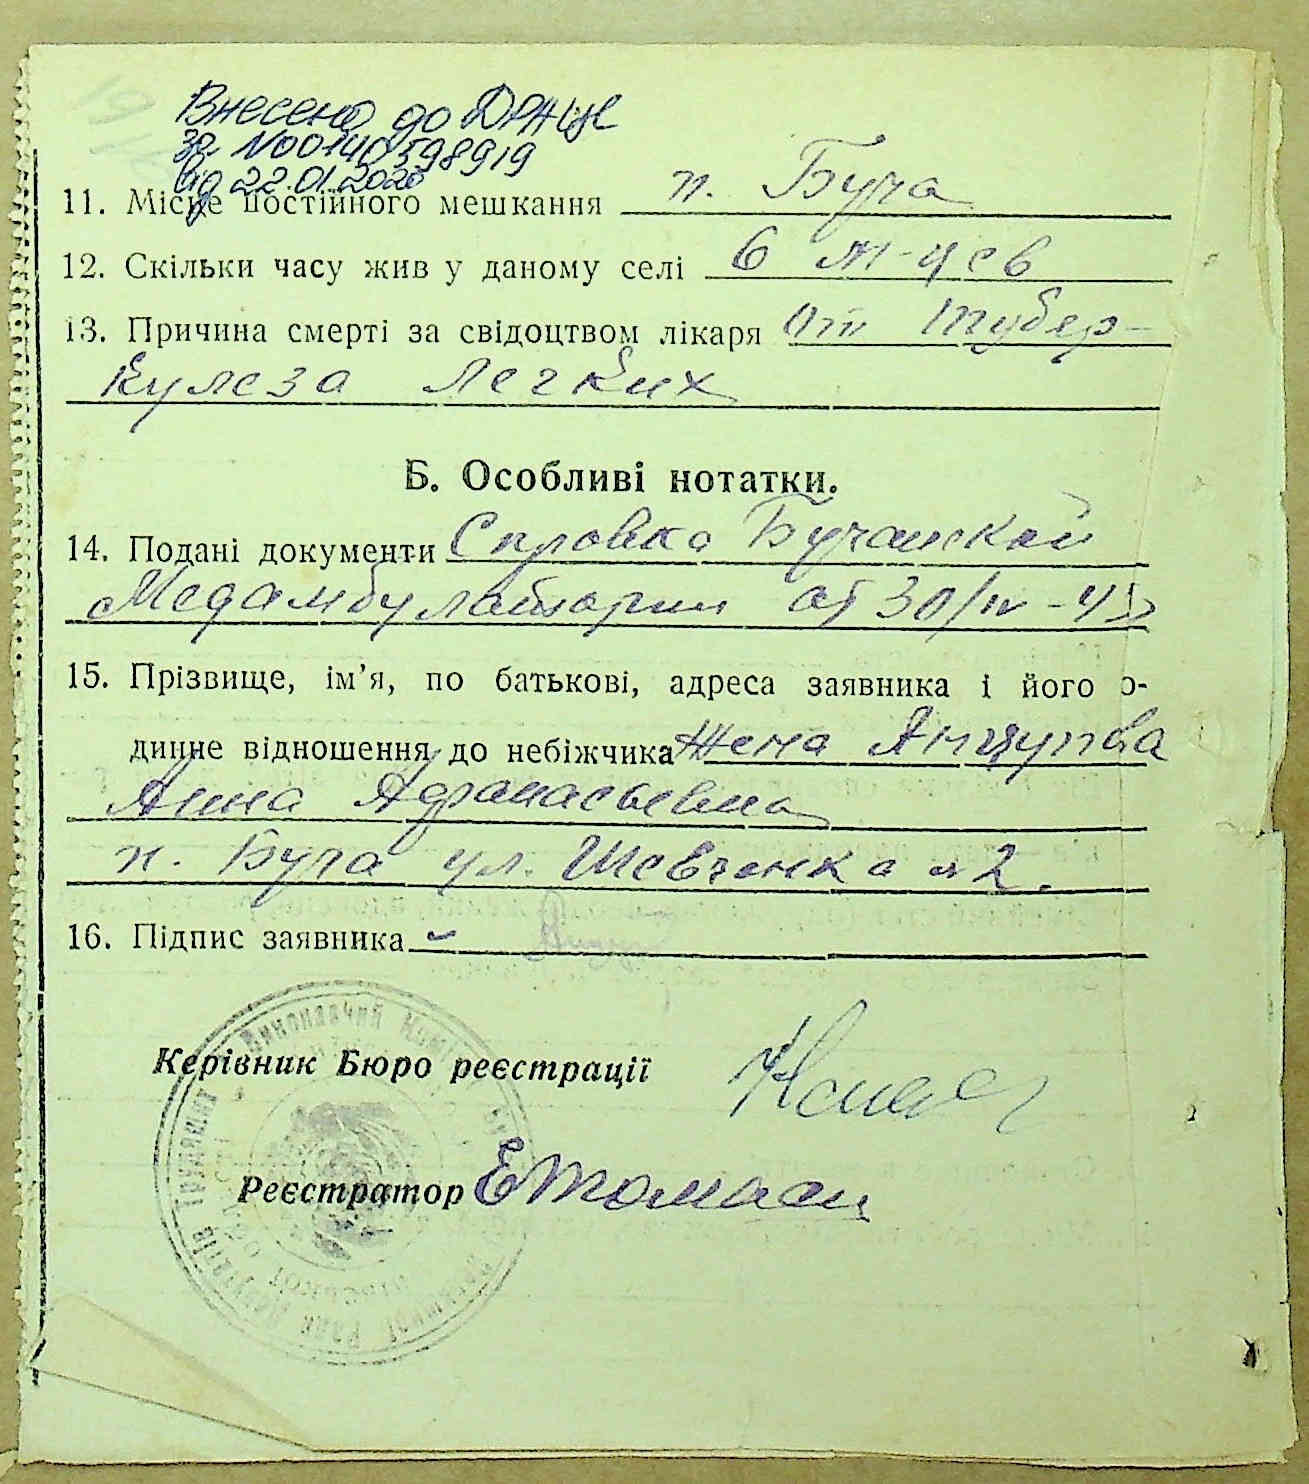 Внесено до ДРАЦС
за №00140598919
від 22.01.2020
11. Місце постійного мешкання п. Буча
12. Скільки часу жив у даному селі 6 м-цев
13. Причина смерті за свідоцтвом лікаря От тубер-
кулеза легких
Б. Особливі нотатки.
14. Подані документи Справка Бучанской
Медамбулатории от 30/IV-
15. Прізвище, ім’я, по батькові, адреса заявника і його
динне відношення до небіжчика Жена Анцупова
Анна Афанасьевна
п. Буча ул. Шевченка 2.
16. Підпис заявника
Керівник Бюро реєстрації
Реєстратор
Виконавчий
Ради Депутатів Трудящих